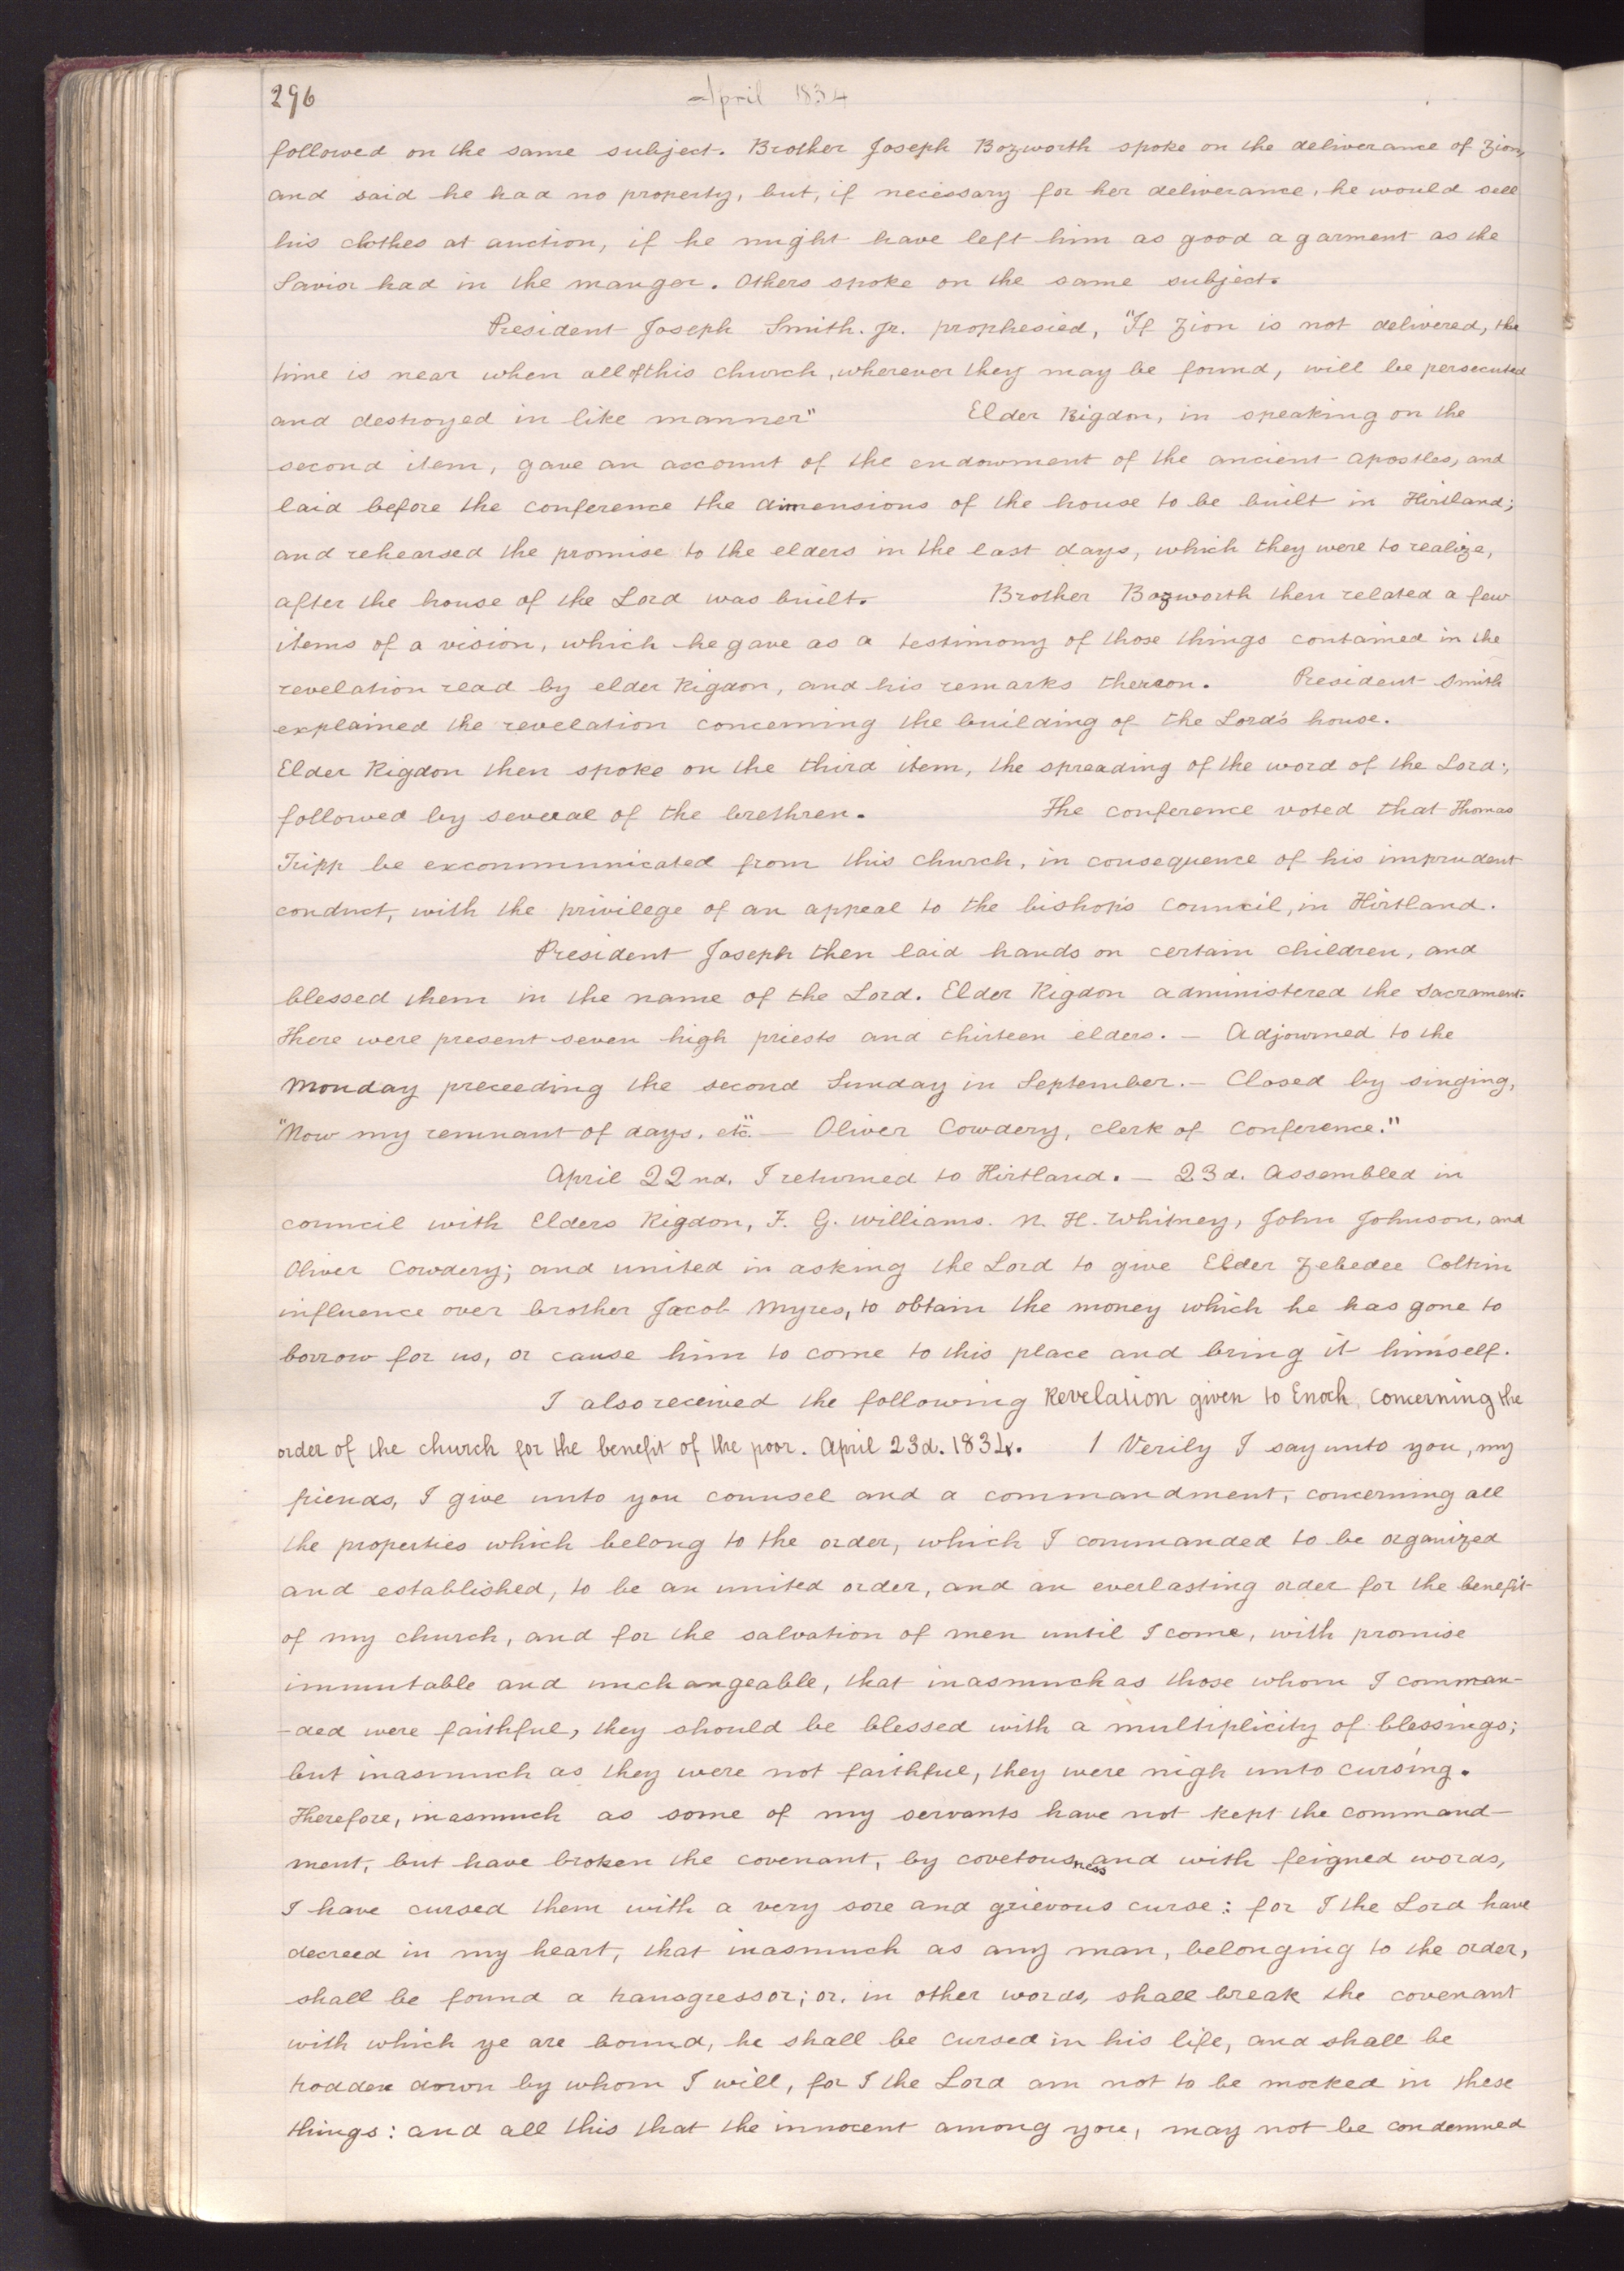 296
April 1834
followed on the same subject. Brother Joseph Bozworth spoke on the deliverance of Zion,
and said he had no property, but, if necessary for her deliverance, he would sell
his clothes at auction, if he might have left him as good a garment as the
Savior had in the manger. Others spoke on the same subject.
President Joseph Smith. Jr. prophesied, "If Zion is not delivered, the
time is near when all of this church, wherever they may be found, will be persecuted
and destroyed in like manner" Elder Rigdon, in speaking on the
second item, gave an account of the endowment of the ancient apostles, and
laid before the conference the dimensions of the house to be built in Kirtland;
and rehearsed the promise to the elders in the last days, which they were to realize,
after the house of the Lord was built. Brother Bozworth then related a few
items of a vision, which he gave as a testimony of those things contained in the
revelation read by elder Rigdon, and his remarks thereon. President Smith
explained the revelation concerning the building of the Lord's house.
Elder Rigdon then spoke on the third item, the spreading of the word of the Lord;
followed by several of the brethren. The conference voted that Thomas
Tripp be excommunicated from this church, in consequence of his imprudent
conduct, with the privilege of an appeal to the bishop's council, in Kirtland.
President Joseph then laid hands on certain children, and
blessed them in the name of the Lord. Elder Rigdon administered the sacrament.
There were present seven high priests and thirteen elders. — Adjourned to the
Monday preceeding the second Sunday in September. — Closed by singing,
"Now my remnant of days, etc." — Oliver Cowdery, clerk of conference."
April 22nd. I returned to Kirtland. — 23d. Assembled in
council with Elders Rigdon, F. G. Williams. N. K. Whitney, John Johnson, and
Oliver Cowdery; and united in asking the Lord to give Elder Zebedee Coltrin
influence over brother Jacob Myres, to obtain the money which he has gone to
borrow for us, or cause him to come to this place and bring it himself.
I also received the following Revelation given to Enoch, concerning the
order of the church for the benefit of the poor. April 23d. 1834. 1 Verily I say unto you, my
friends, I give unto you counsel and a commandment, concerning all
the properties which belong to the order, which I commanded to be organized
and established, to be an united order, and an everlasting order for the benefit
of my church, and for the salvation of men until I come, with promise
immutable and unchangeable, that inasmuch as those whom I comman-
-ded were faithful, they should be blessed with a multiplicity of blessings;
but inasmuch as they were not faithful, they were nigh unto cursing.
Therefore, inasmuch as some of my servants have not kept the command-
ment, but have broken the covenant, by covetousness and with feigned words,
I have cursed them with a very sore and grievous curse: for I the Lord have
decreed in my heart, that inasmuch as any man, belonging to the order,
shall be found a transgressor; or, in other words, shall break the covenant
with which ye are bound, he shall be cursed in his life, and shall be
trodden down by whom I will, for I the Lord am not to be mocked in these
things: and all this that the innocent among you, may not be condemned